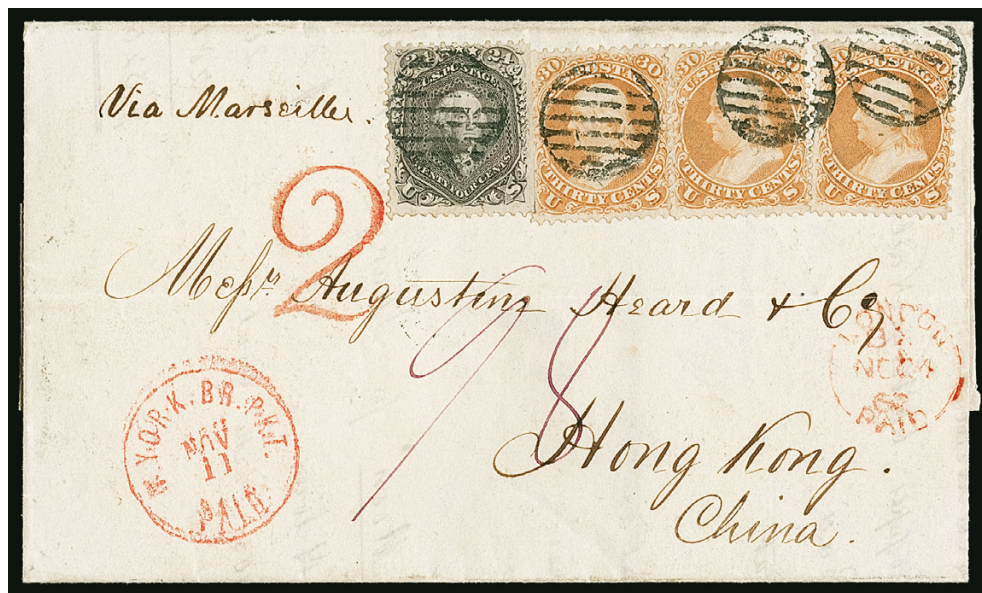 Via Marseilles.
24 24
U.S. POSTAGE
TWENTY FOUR CENTS
U S
30 POSTAGE 30
THIRTY CENTS
U S
30
U.S. POSTAGE
THIRTY CENTS
U S
POSTAGE
THIRTY CENTS
U S
2
Messrs Augustine Heard & Co
98
Hong Kong.
China.
N. YORK. BR. PKT.
NOV
11
PAID
LONDON
NO 24
PAID